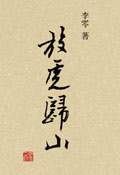 李零 著
放虎歸山